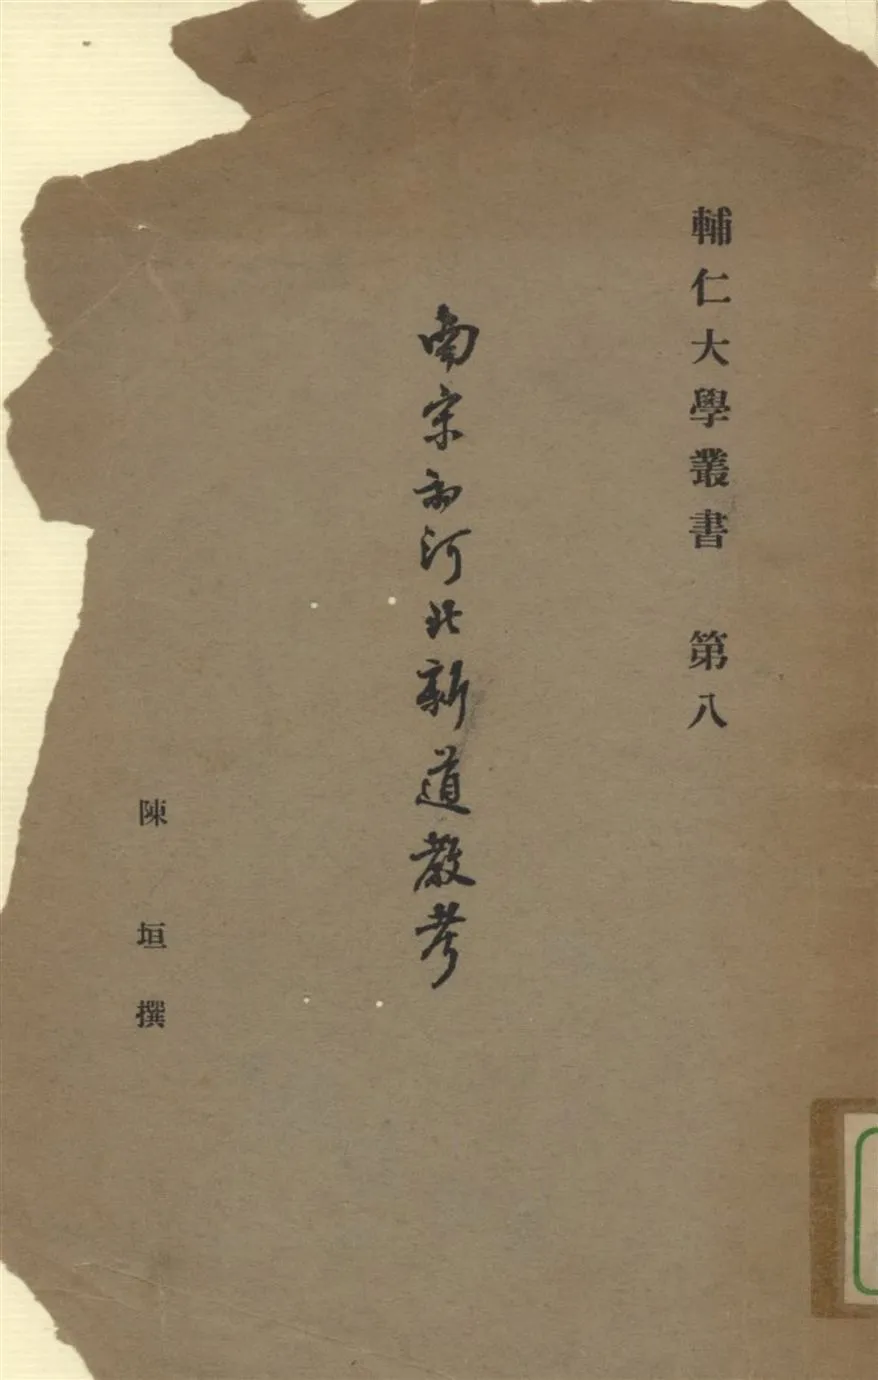 輔仁大學叢書 第八
南宋初河北新道教考
陳垣撰